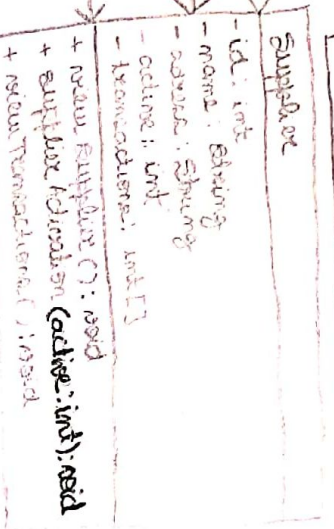 Supplier
- id: int
- name: String
- adress: String
- active: int
- transactions: int[]
+ view Supplier(): void
+ supplier Activation (active: int): void
+ view Transactions(): void